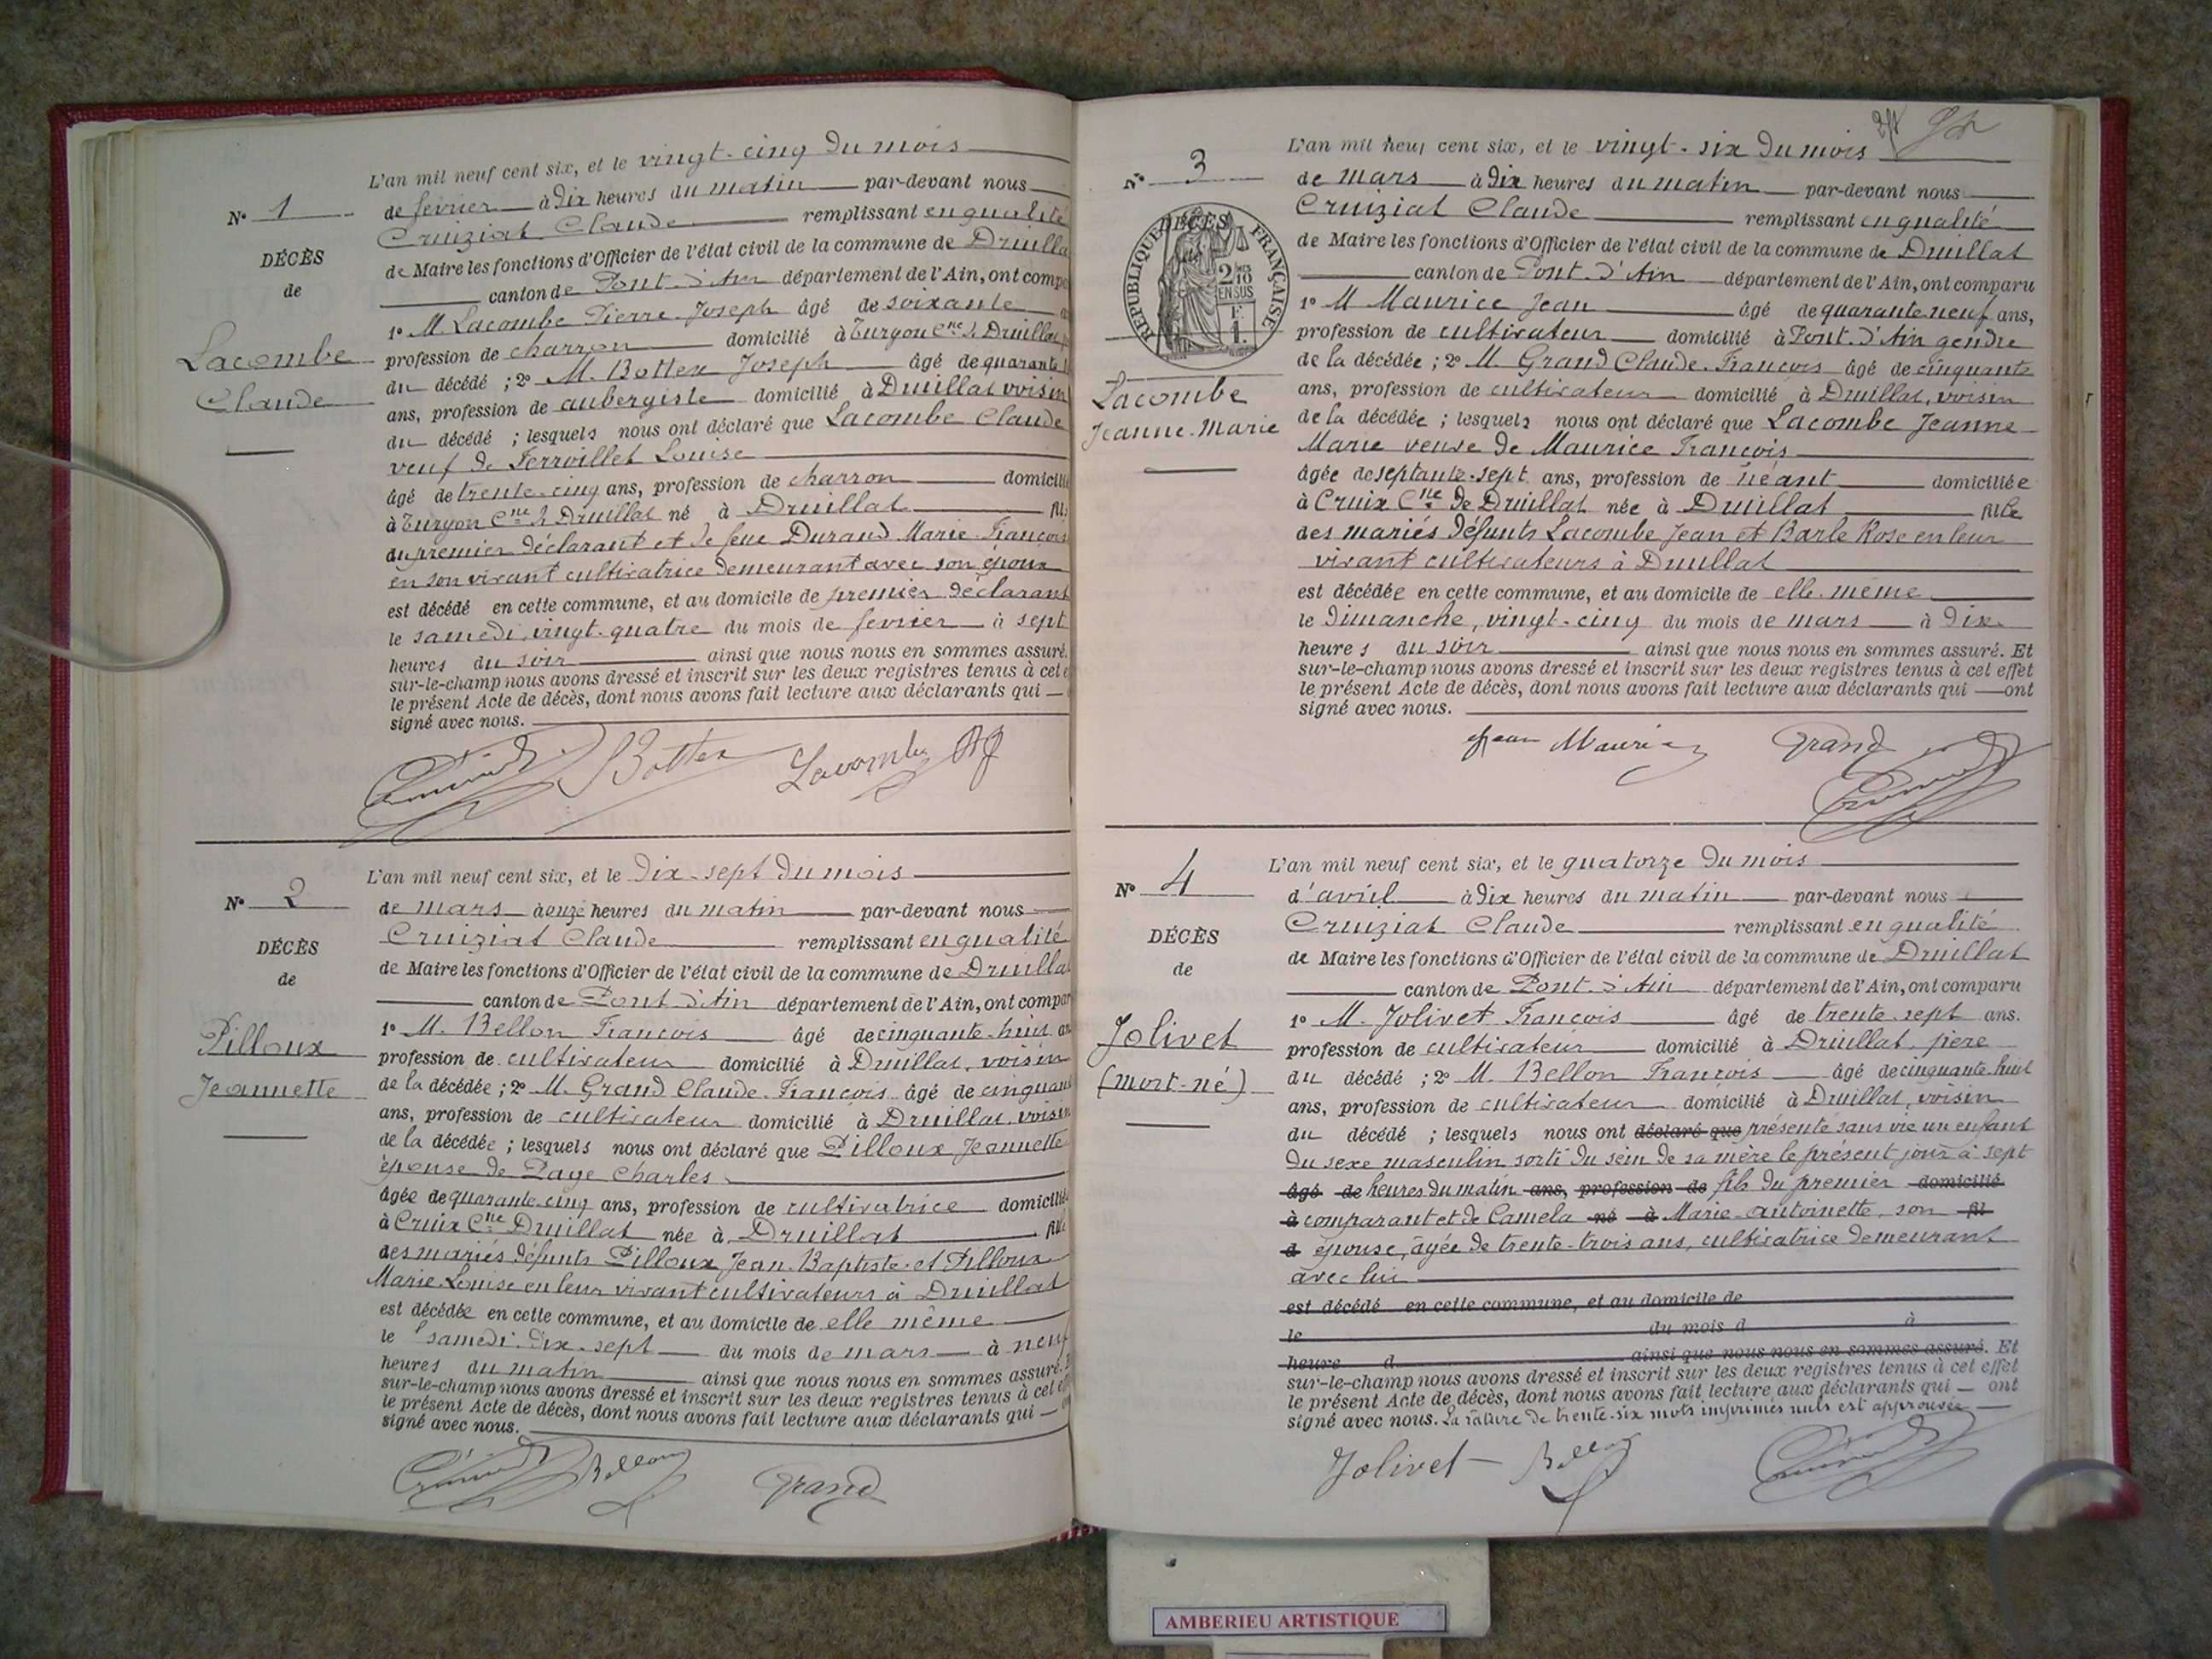 L'an mil neuf cent six, et le vingt-cinq du mois
de février à dix heures du matin par-devant nous
N° 1
Cruiziat Claude remplissant en qualité
DÉCÈS
de Maire les fonctions d'Officier de l'état civil de la commune de Druilla
de
canton de Pont-d'Ain département de l'Ain, ont compa
1° M Lacombe Pierre-Joseph âgé de soixante
Lacombe
profession de charron domicilié à Turgon Cne de Druillat
Claude
du décédé ; 2° M. Bottex Joseph âgé de quarante
ans, profession de aubergiste domicilié à Druillat voisin
du décédé ; lesquels nous ont déclaré que Lacombe Claude
veuf de Ferroillet Louise
âgé de trente-cinq ans, profession de charron domicilié
à Turgon Cne de Druillat né à Druillat fils
du premier déclarant et de feue Durand Marie-Françoise
en son vivant cultivatrice demeurant avec son époux
est décédé en cette commune, et au domicile de premier déclarant
le samedi, vingt-quatre du mois de février à sept
heures du soir ainsi que nous nous en sommes assuré.
sur-le-champ nous avons dressé et inscrit sur les deux registres tenus à cet e
le présent Acte de décès, dont nous avons fait lecture aux déclarants qui
signé avec nous.
Bottex Lacombe
L'an mil neuf cent six, et le dix-sept du mois
N° 2
de mars à onze heures du matin par-devant nous
DÉCÈS
Cruiziat Claude remplissant en qualité
de
de Maire les fonctions d'Officier de l'état civil de la commune de Druillat
canton de Pont-d'Ain département de l'Ain, ont compar
Pilloux
1° M. Bellon François âgé de cinquante-huit an
profession de cultivateur domicilié à Druillat, voisin
Jeannette
de la décédée ; 2° M. Grand Claude-François âgé de cinquant
ans, profession de cultivateur domicilié à Druillat, voisin
de la décédée ; lesquels nous ont déclaré que Pilloux Jeannette
épouse de Page Charles
âgée de quarante-cinq ans, profession de cultivatrice domicilié
à Cruix Cne Druillat née à Druillat fille
des mariés défunts Pilloux Jean-Baptiste et Pilloux
Marie-Louise en leur vivant cultivateurs à Druillat
est décédée en cette commune, et au domicile de elle même
le samedi dix-sept du mois de mars à neuf
heures du matin ainsi que nous nous en sommes assuré.
sur-le-champ nous avons dressé et inscrit sur les deux registres tenus à cet ef
le présent Acte de décès, dont nous avons fait lecture aux déclarants qui
signé avec nous.
Bellon Grand
L'an mil neuf cent six, et le vingt-six du mois
N° 3
de mars à dix heures du matin par-devant nous
Cruiziat Claude remplissant en qualité
RÉPUBLIQUE FRANÇAISE
DÉCÈS
2/10 EN SUS
F. 1.
de Maire les fonctions d'Officier de l'état civil de la commune de Druillat
canton de Pont-d'Ain département de l'Ain, ont comparu
1° M Maurice Jean âgé de quarante neuf ans,
profession de cultivateur domicilié à Pont-d'Ain gendre
de la décédée ; 2° M. Grand Claude-François âgé de cinquante
Lacombe
ans, profession de cultivateur domicilié à Druillat, voisin
Jeanne-Marie
de la décédée ; lesquels nous ont déclaré que Lacombe Jeanne
Marie veuve de Maurice François
âgée de septante-sept ans, profession de néant domiciliée
à Cruix Cne de Druillat née à Druillat fille
des mariés défunts Lacombe Jean et Barle Rose en leur
vivant cultivateurs à Druillat
est décédée en cette commune, et au domicile de elle-même
le dimanche, vingt-cinq du mois de mars à dix
heures du soir ainsi que nous nous en sommes assuré. Et
sur-le-champ nous avons dressé et inscrit sur les deux registres tenus à cet effet
le présent Acte de décès, dont nous avons fait lecture aux déclarants qui ont
signé avec nous.
Jean Maurice Grand
L'an mil neuf cent six, et le quatorze du mois
N° 4
d'avril à dix heures du matin par-devant nous
Cruiziat Claude remplissant en qualité
DÉCÈS
de Maire les fonctions d'Officier de l'état civil de la commune de Druillat
de
canton de Pont-d'Ain département de l'Ain, ont comparu
Jolivet
1° M. Jolivet François âgé de trente-sept ans.
profession de cultivateur domicilié à Druillat, père
(mort-né)
du décédé ; 2° M. Bellon François âgé de cinquante-huit
ans, profession de cultivateur domicilié à Druillat, voisin
du décédé ; lesquels nous ont déclaré que présenté sans vie un enfant
du sexe masculin sorti du sein de sa mère le présent jour à sept
âgé de heures du matin ans, profession de fils du premier domicilié
à comparant et de Camela né à Marie-Antoinette, son fil
d épouse, âgée de trente-trois ans, cultivatrice demeurant
avec lui
est décédé en cette commune, et au domicile de
le du mois d à
heure d ainsi que nous nous en sommes assuré. Et
sur-le-champ nous avons dressé et inscrit sur les deux registres tenus à cet effet
le présent Acte de décès, dont nous avons fait lecture aux déclarants qui ont
signé avec nous. La rature de trente-six mots imprimés nuls est approuvée
Jolivet Bellon
AMBERIEU ARTISTIQUE